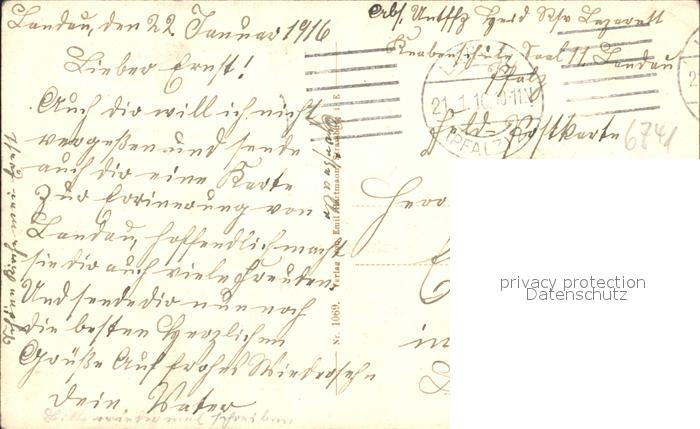 Landau, den 22 Januar 1916
Lieber Ernst!
Auch dir will ich nicht
vergeßen und sende
auch dir eine Karte
Zur Errinerung von
Landau, hoffendlich macht
sie dir auch viele Freuden.
Und sende dir nun noch
die besten Herzlichen
Grüße Auf frohes Wiedersehn
dein Vater
Bitte wieder mal schreiben
Abs. Untffz Res Lazarett
Knabenschule Saal 11 Landau
Pfalz
Feld-Postkarte
6741
(PFALZ)
Nr. 1069. Verlag von Emil Hartmann, Strassburg i. E.
Herr
in
privacy protection
Datenschutz